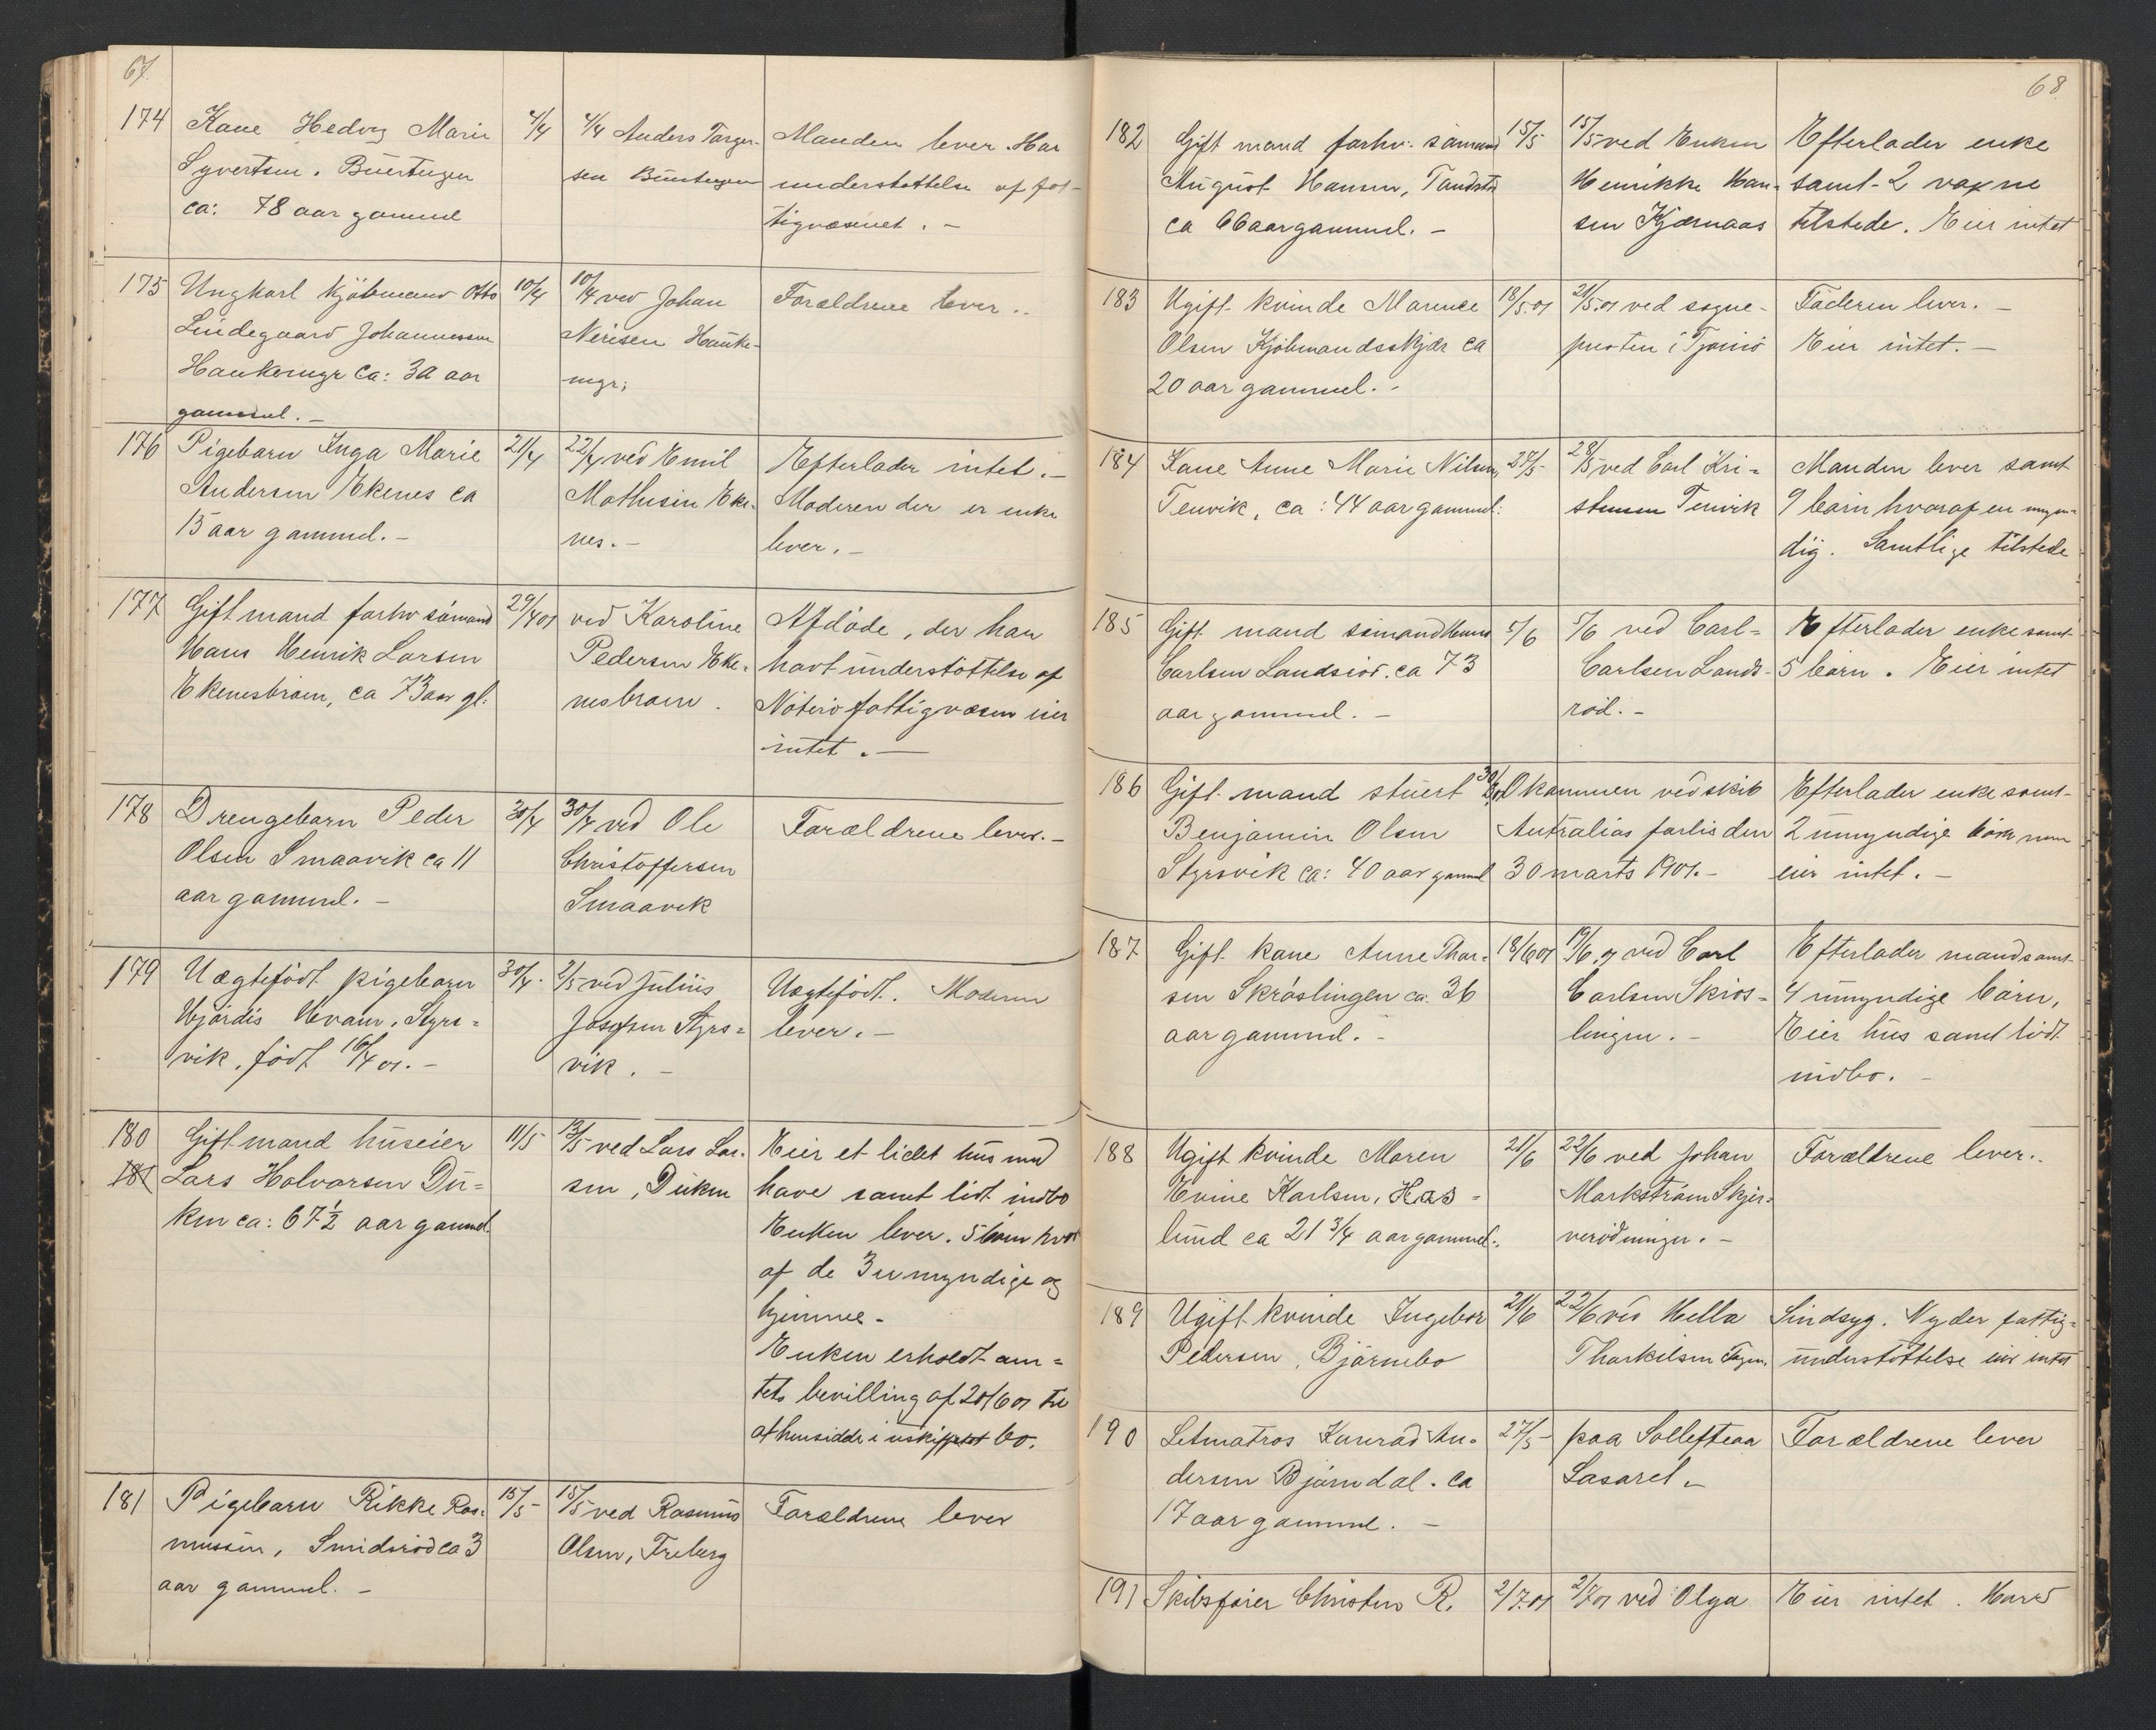 67.
174 Kone Hedvig Marie 4/4 4/4 Anders Torger- Manden lever. Har
Syvertsen. Buerstuen sen Buerstuen understøttelse af fat-
ca: 78 aar gammel tigvæsenet. -
175 Ungkarl kjøbmand Otto 10/4 10/4 ved Johan Forældrene lever..
Lindegaard Johannessen Nerisen Hauke-
Haukemyr ca: 30 aar myr;
gammel. -
176 Pigebarn Inga Marie 21/4 22/4 ved Emil Efterlader intet. -
Andersen Ekenes ca Mathisen Eke- Moderen der er enke
15 aar gammel. - nes. - lever. -
177 Gift mand forhv sømand 29/4 01 ved Karoline Afdøde, der har
Hans Henrik Larsen Pedersen Eke- havt understøttelse af
Ekenesbraen, ca 73 aar gl. nesbraen. Nøterø fattigvæsen eier
intet. -
178 Drengebarn Peder 30/4 30/4 ved Ole Forældrene lever. -
Olsen Smaavik ca 11 Christoffersen
aar gammel. - Smaavik
179 Uægtefødt pigebarn 30/4. 2/5 ved Julius Uægtefødt. Moderen
Hjørdis Kvam, Styrs= Josefsen Styrs= lever. -
vik, født 16/4 01. - vik. -
180 Gift mand huseier 11/5 13/5 ved Lars Lar- Eier et lidet hus med
181 Lars Halvorsen Du= sen, Duken have samt lidt indbo
ken ca: 67 1/2 aar gammel Enken lever. 5 børn hvor
af de 3 umyndige og
hjemme -
Enken erholdt am=
tets bevilling af 20/6 01 til
at hensidde i uskiftet bo.
181 Pigebarn Rikke Ras- 15/5 15/5 ved Rasmus Forældrene lever
mussen, Smidsrød ca 3 Olsen, Freberg
aar gammel. -
68
182 Gift mand forhv: sømand 15/5 15/5 ved Enken Efterlader enke
August Hansen, Henrikke Han- samt 2 voxne
ca 66 aar gammel. - sen Kjærnaas tilstede. Eier intet
183 Ugift kvinde Marence 18/5.01 21/5.01 ved sogne- Faderen lever. -
Olsen Kjøbmandsskjær ca presten i Tjømø Eier intet. -
20 aar gammel. -
184 Kone Anne Marie Nilsen, 27/5 28/5 ved Carl Kri= Manden lever samt
Tenvik, ca: 44 aar gammel: stensen Tenvik 9 børn hvoraf en umyn-
dig. Samtlige tilstede
185 Gift mand sømand Hans 5/6 5/6 ved Carl= Efterlader enke samt
Carlsen Landsrød. ca 73 Carlsen Lands- 5 børn. Eier intet
aar gammel. - rød. -
186 Gift mand stuert 30/3 01 Omkommen ved skib Efterlader enke samt-
Benjamin Olsen Australias forlis den 2 umyndige børn men
Styrsvik ca: 40 aar gammel 30 marts 1901. - eier intet. -
187 Gift kone Anne Thor- 18/6 01 19/6.01 ved Carl Efterlader mand samt
sen Skrøslingen ca. 36 Carlsen Skrøs- 4 umyndige børn,
aar gammel. - lingen. - Eier hus samt lidt
indbo. -
188 Ugift kvinde Maren 21/6 22/6 ved Johan Forældrene lever..
Evine Karlsen, Has= Markstrøm Skjer-
lund ca 21 3/4 aar gammel. verødningen. -
189 Ugift kvinde Ingebor 21/6 22/6 ved Hella Sindsyg. Nyder fattig=
Pedersen, Bjørnebo Thorkilsen understøttelse eier intet
190 Letmatros Konrad An- 27/5 paa Sollefteaa Forældrene lever
dersen Bjørndal. ca Lasaret. -
17 aar gammel. -
191 Skibsfører Christen R. 2/7.01 2/7 01 ved Olga Eier intet. Havd